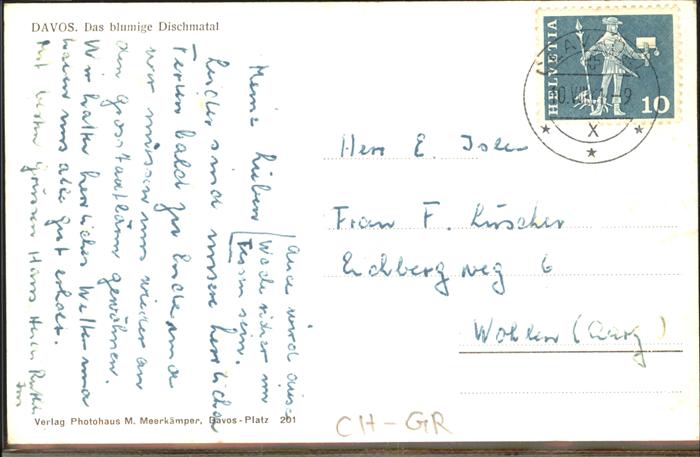 DAVOS. Das blumige Dischmatal
HELVETIA
10
Meine Lieben
Leider sind unsere herrlichen
Ferien bald zu Ende und
wir müssen uns wieder an
den Grosstadtlärm gewöhnen.
Wir hatten herrliches Wetter und
haben uns alle gut erholt.
Mit besten Grüssen Hans
Herr E. Isler
Frau F. Lüscher
Eichbergweg 6
Wohlen (Aarg)
Verlag Photohaus M. Meerkämper, Davos-Platz 201
CH-GR